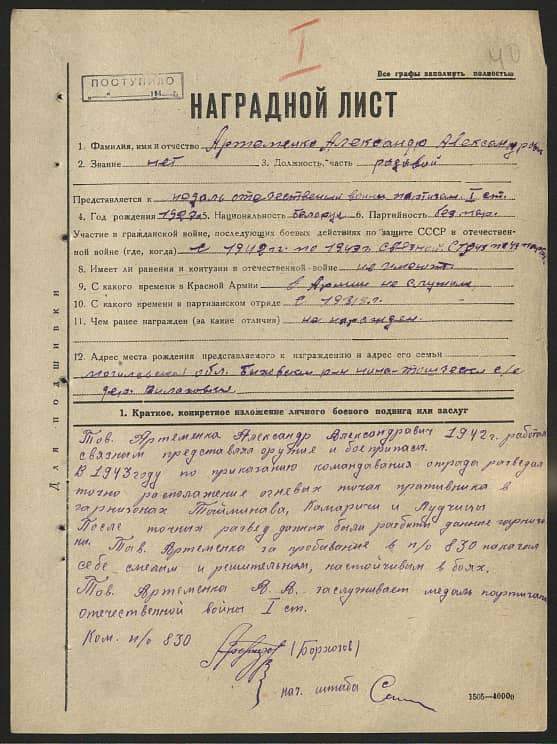 I
40
Все графы заполнять полностью
ПОСТУПИЛО
"     "     194   г.
НАГРАДНОЙ ЛИСТ
1. Фамилия, имя и отчество Артеменко Александр Александрович
2. Звание нет 3. Должность, часть рядовой
Представляется к медаль отечественной войны партизан. I ст.
4. Год рождения 5. Национальность белорус 6. Партийность беспар.
Участие в гражданской войне, последующих боевых действиях по защите СССР и отечествен-
ной войне (где, когда) с 1942 г. по 1943 г. связной
8. Имеет ли ранения и контузии в отечественной войне не имеет
9. С какого времени в Красной Армии в Армии не служил
10. С какого времени в партизанском отряде с
11. Чем ранее награжден (за какие отличия) не награжден.
12. Адрес места рождения представляемого к награждению и адрес его семьи
Могилевская обл. Быховский р-н с/с
дер.
Для подшивки
1. Краткое, конкретное изложение личного боевого подвига или заслуг
Тов. Артеменка Александр Александравич 1942 г. работал
связным представлял оружие и боеприпасы.
В 1943 году по приказанию командавания отряда разведал
точно расположение огневых точак пративника в
гарнизонах Таймина­ва, Камаричи и Лудчицы
После точных развед данных были разбиты данные гарнизо-
ны. Тав. Артеменка за пребывание в п/о 830 паказал
себе смелым и решительным, настойчивым в боях.
Тав. Артеменка А. А. заслуживает медаль партизан
отечественной войны I ст.
Ком. п/о 830
нач. штаба
1505—40000